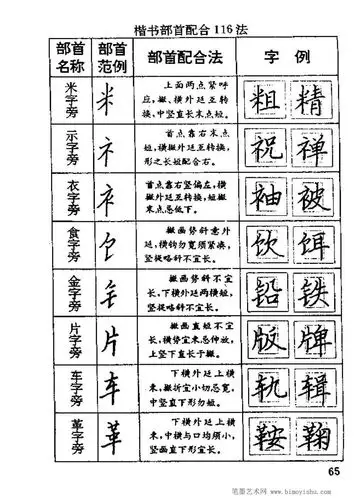 楷书部首配合116法
部首名称 部首范例 部首配合法 字例
米字旁 米 上面两点紧呼
应,撇、横外廷至转
换,中竖直长末点短。 粗 精
示字旁 礻 首点靠右末点
短,横撇外廷至转换,
形之长短配合右。 祝 禅
衣字旁 衤 首点靠右竖偏左,横
撇外廷至转换,短撇
末点忌低下。 袖 被
食字旁 饣 撇画势斜意片
廷,横钩勿宽须紧凑,
竖提略斜不宜长。 饮 饵
金字旁 钅 撇画势斜不宜
长,下横外廷两横短,
竖提略斜不宜长。 铅 铁
片字旁 片 撇画直短不宜
长,横势宜来忌伸放,
上竖下直长于撇。 版 牌
车字旁 车 下横外廷上横
束,撇折宜小切忌宽,
中竖直下形勿短。 轨 辑
革字旁 革 下横外廷上横
束,中横与口均须小,
竖画直下形宜长。 鞍 鞠
65
笔墨艺术网 www.bimoyishu.com